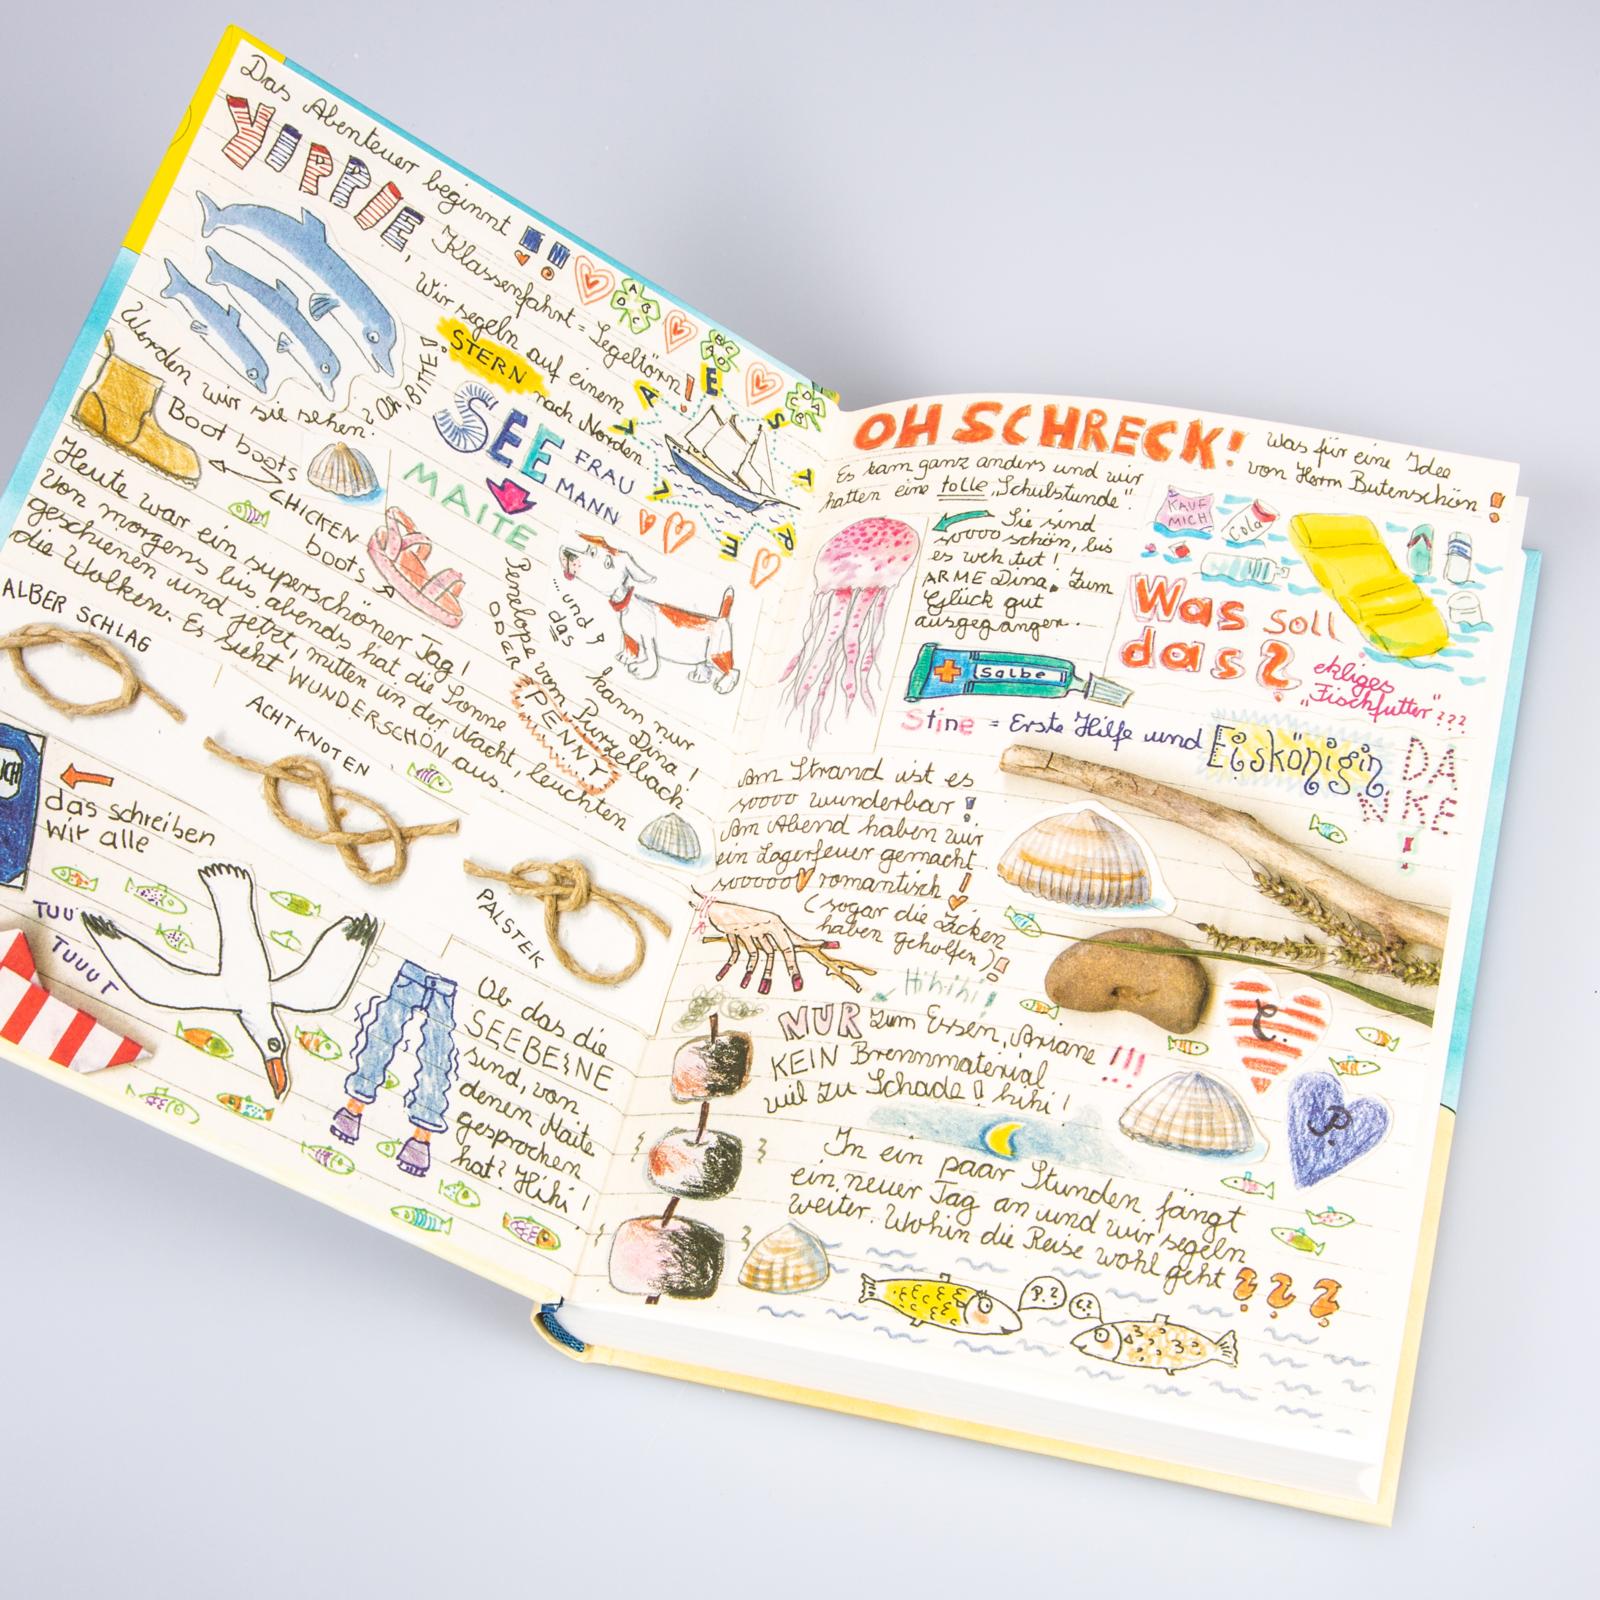 Das Abenteuer beginnt !!
YIPPIE,
Klassenfahrt = Segeltörn!
Wir segeln auf einem
STERN nach Norden
Werden wir sie sehen? Oh, BITTE!
SEE FRAU
MANN
MAITE
Boot boots
CHICKEN
boots
Heute war ein superschöner Tag!
Von morgens bis abends hat die Sonne
geschienen und jetzt, mitten in der Nacht, leuchten
die Wolken. Es sieht WUNDERSCHÖN aus.
...und
das
kann nur Dina!
Penelope vom Purzelbach
ODER
PENNY
ALBER SCHLAG
ACHTKNOTEN
PALSTEK
ICH
das schreiben
wir alle
TUU
TUUUT
Ob das die
SEEBEINE
sind, von
denen Maite
gesprochen
hat? Hihi!
OH SCHRECK!
Was für eine Idee
von Herrn Butenschön!
Es kam ganz anders und wir
hatten eine tolle „Schulstunde".
Sie sind
soooo schön, bis
es weh tut!
ARME Dina. Zum
Glück gut
ausgegangen.
KAUF
MICH!
Cola
Was soll
das?
ekliges
„Fischfutter"???
Salbe
Stine = Erste Hilfe und Eiskönigin
DA
NKE
!
Am Strand ist es
soooo wunderbar!
Am Abend haben wir
ein Lagerfeuer gemacht
sooooo romantisch!
(sogar die Zicken
haben geholfen)!
Hihihi!
NUR zum Essen, Ariane!!!
KEIN Brennmaterial
viel zu Schade! hihi!
L.
P.
In ein paar Stunden fängt
ein neuer Tag an und wir segeln
weiter. Wohin die Reise wohl geht???
P.?
L.?